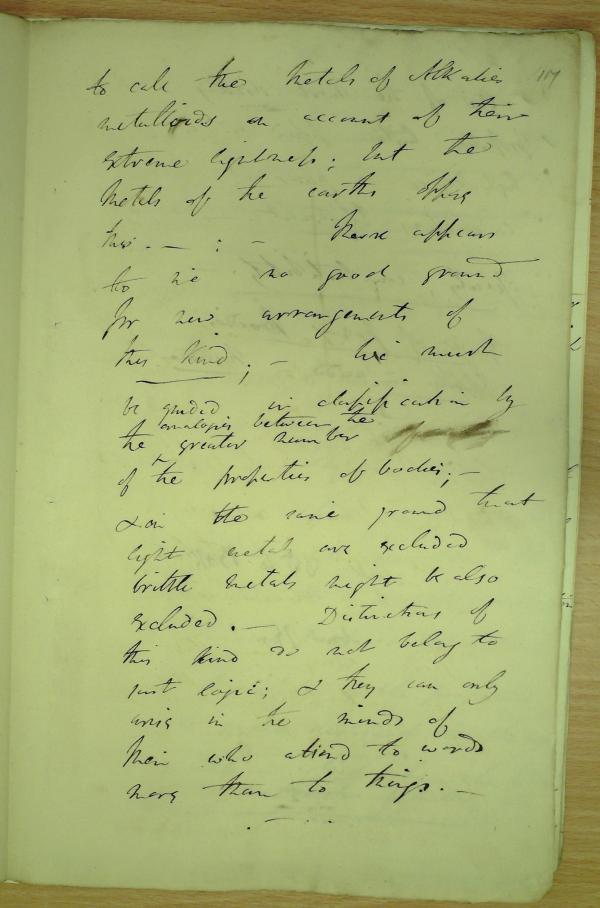 117
to call the Metals of Alkalies
metalloids on account of their
extreme lightness; but the
Metals of the earths oppose
this. — : — There appears
to me no good ground
for new arrangements of
this kind; — We must
be guided in classification by
analogies between the
the greater number
of the properties of bodies; —
& on the same ground that
light metals are excluded
brittle metals might be also
excluded. — Distinctions of
this kind do not belong to
just logic; & they can only
arise in the minds of
Men who attend to words
more than to things. —